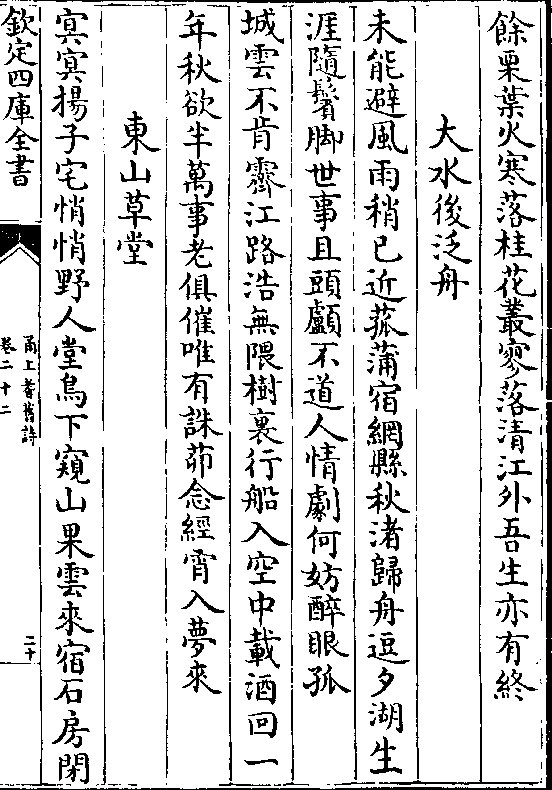 餘栗葉火寒落桂花叢寥落清江外吾生亦有終
大水後泛舟
未能避風雨稍已近菰蒲宿網縣秋渚歸舟逗夕湖生
涯隨鬢脚世事且頭顱不道人情劇何妨醉眼孤
城雲不肯霽江路浩無隈樹裏行船入空中載酒回一
年秋欲半萬事老俱催唯有誅茆念經宵入夢來
東山草堂
寞寞揚子宅悄悄野人堂鳥下窺山果雲來宿石房閉
欽定四庫全書
甬上耆舊詩
卷二十二
二十